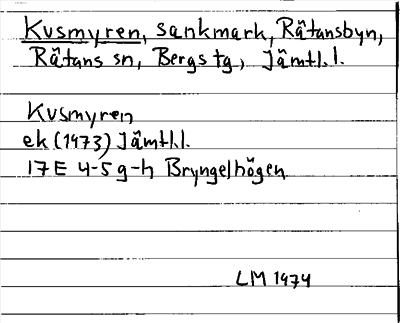 Kvsmyren, sankmark, Rätansbyn,
Rätans sn, Bergs tg, Jämtl.l.
Kvsmyren
ek (1973) Jämtl.l.
17E 4-5 g-h Bryngelhögen
LM 1974